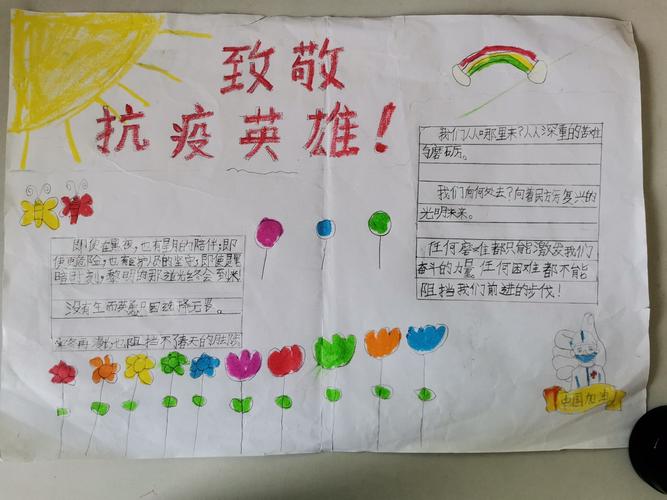 致敬
抗疫英雄！
我们从哪里来？从深重的苦难
与磨砺。
我们向何处去？向着民族复兴的
光明未来。
任何磨难都只能激发我们
奋斗的力量，任何困难都不能
阻挡我们前进的步伐！
即使在黑夜，也有星月的陪伴；即
使再危险，也有的坚守；即使是黑
暗时刻，黎明的那道光终会到来！
没有生而英勇，只因选择无畏。
寒冬再漫，也阻挡不了春天的脚步
中国加油